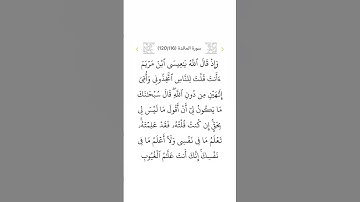 سورة المائدة (120/116)
وَإِذْ قَالَ ٱللَّهُ يَٰعِيسَى ٱبْنَ مَرْيَمَ
ءَأَنتَ قُلْتَ لِلنَّاسِ ٱتَّخِذُونِى وَأُمِّىَ
إِلَٰهَيْنِ مِن دُونِ ٱللَّهِ ۖ قَالَ سُبْحَٰنَكَ
مَا يَكُونُ لِىٓ أَنْ أَقُولَ مَا لَيْسَ لِى
بِحَقٍّ ۚ إِن كُنتُ قُلْتُهُۥ فَقَدْ عَلِمْتَهُۥ ۚ
تَعْلَمُ مَا فِى نَفْسِى وَلَآ أَعْلَمُ مَا فِى
نَفْسِكَ ۚ إِنَّكَ أَنتَ عَلَّٰمُ ٱلْغُيُوبِ